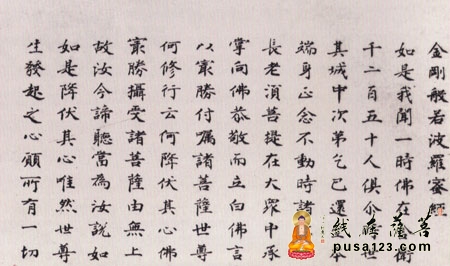 金剛般若波羅蜜經
如是我聞一時佛在衛
千二百五十人俱尒世
其城中次第乞已還本
端身正念不動時諸
長老須菩提在大眾中承
掌向佛恭敬而立白佛言
以冣勝付属諸菩薩世尊
何修行云何降伏其心佛
冣勝攝受諸菩薩由無上
故汝今諦聽當為汝說如
如是降伏其心唯然世尊
生發起之心願所有一切
pusa123.com